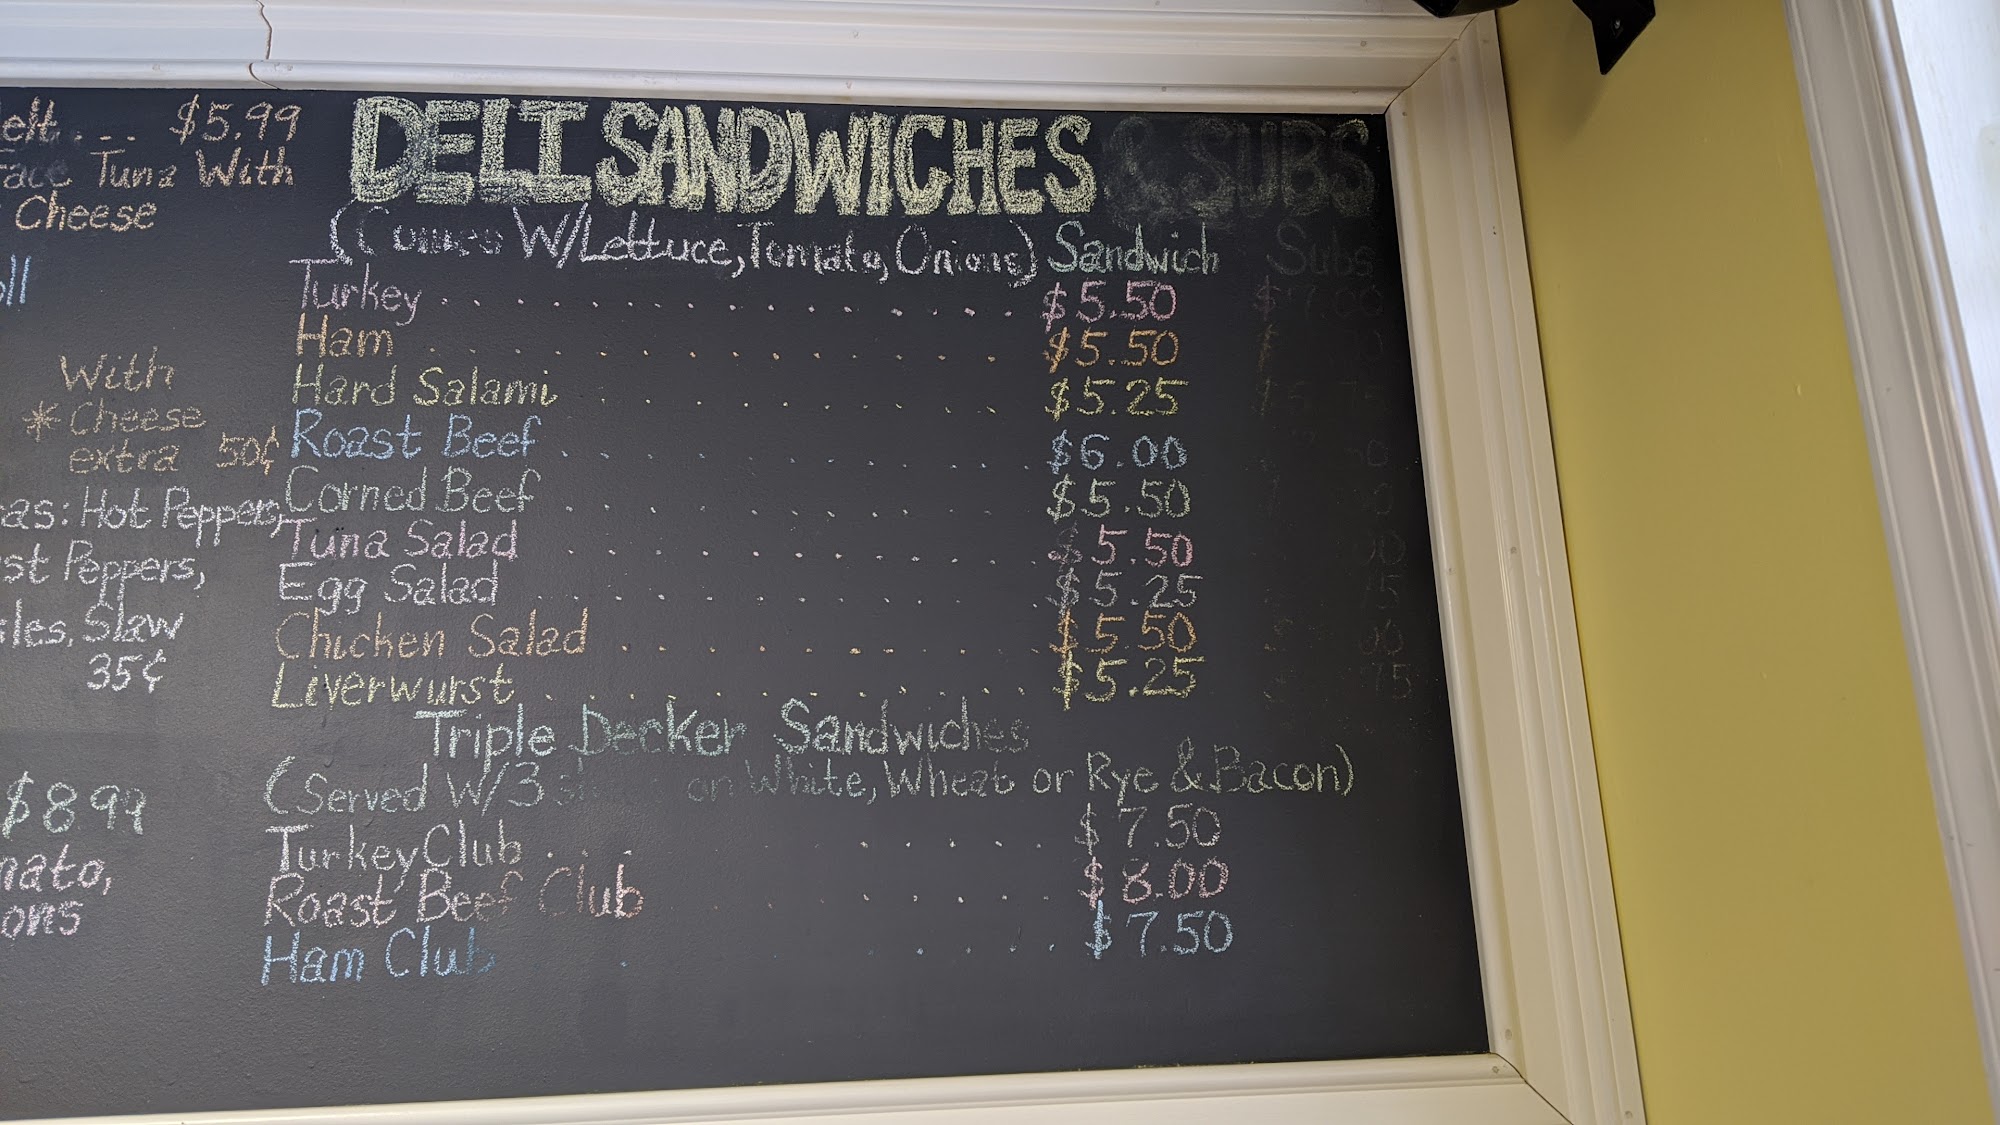 $5.99
Tuna With
Cheese
With
* Cheese
extra 50¢
Hot Peppers,
Peppers,
Slaw
35¢
$8.99
DELI SANDWICHES & SUBS
(Comes W/Lettuce, Tomato, Onions) Sandwich Subs
Turkey . . . . . . . . . . . . . . $5.50 $7.00
Ham . . . . . . . . . . . . . . $5.50
Hard Salami . . . . . . . . . . $5.25
Roast Beef . . . . . . . . . . . $6.00
Corned Beef . . . . . . . . . . $5.50
Tuna Salad . . . . . . . . . . . $5.50
Egg Salad . . . . . . . . . . . $5.25
Chicken Salad . . . . . . . . . . $5.50
Liverwurst . . . . . . . . . . . $5.25
Triple Decker Sandwiches
(Served W/3 on White, Wheat or Rye & Bacon)
Turkey Club . . . . . . . $7.50
Roast Beef Club . . . . . . $8.00
Ham Club . . . . . . $7.50